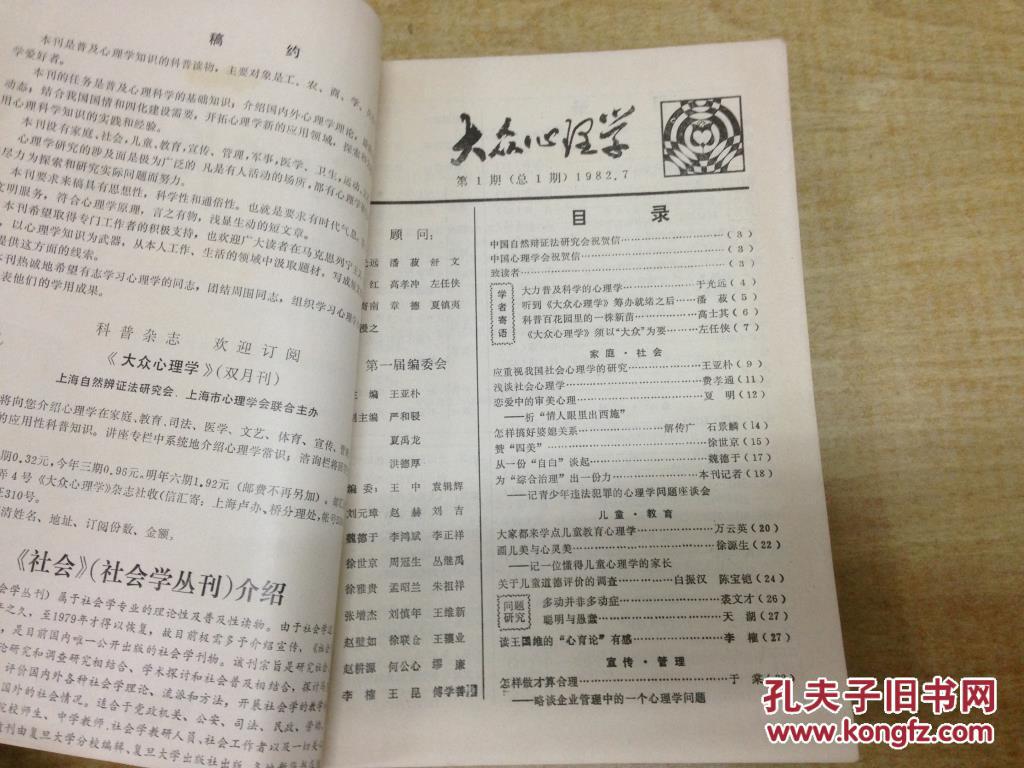 稿 约
本刊是普及心理学知识的科普读物,主要对象是工、农、商、学、
学爱好者。
本刊的任务是普及心理科学的基础知识;介绍国内外心理学理论,
动态;结合我国国情和四化建设需要,开拓心理学新的应用领域,探索
用心理科学知识的实践和经验。
本刊设有家庭、社会,儿童、教育,宣传、管理,军事,医学、卫生,运动、
心理学研究的涉及面是极为广泛的 凡是有人活动的场所,都有心理学
尽力为探索和研究实际问题而努力。
本刊要求来稿具有思想性,科学性和通俗性。也就是要求有时代气息,
文明服务,符合心理学原理,言之有物,浅显生动的短文章。
本刊希望取得专门工作者的积极支持,也欢迎广大读者在马克思列宁主
,以心理学知识为武器,从本人工作、生活的领域中汲取题材,写成
提供这方面的线索。
本刊热诚地希望有志学习心理学的同志,团结周围同志,组织学习心理学
表他们的学用成果。
科普杂志 欢迎订阅
《大众心理学》(双月刊)
上海自然辨证法研究会、上海市心理学会联合主办
将向您介绍心理学在家庭、教育、司法、医学、文艺、体育、宣传、
的应用性科普知识。讲座专栏中系统地介绍心理学常识;咨询栏将
期0.32元,今年三期0.96元。明年六期1.92元(邮费不再另加)。
弄4号《大众心理学》杂志社收(信汇寄:上海卢办、桥分理处,帐号
在310号。
清姓名、地址、订阅份数、金额,
《社会》(社会学丛刊)介绍
会学丛刊)属于社会学专业的理论性及普及性读物。由于社会学
年之久,至1979年才得以恢复,故目前极需多于介绍宣传,《社会
,是目前国内唯一公开出版的社会学刊物。该刊宗旨是研究社会
论研究和调查研究相结合、学术探讨和社会普及相结合,探讨
评价国内外各种社会学理论、流派和方法,开展社会学的教学
国外的社会情况。适合于党政机关、公安、司法、民政、劳动、
院校师生、中学教师、社会学教研人员、社会工作者以及一切关
刊由复旦大学分校编辑、复旦大学出版社出版、
大众心理学
第1期(总1期)1982.7
顾 问:
光远 潘 菽 舒 文
红 高孝冲 左任侠
南 章 德 夏镇夷
漫之
第一届编委会
主 编 王亚朴
副主编 严和骎
夏禹龙
洪德厚
编 委: 王 中 袁辑辉
刘元璋 赵 赫 刘 吉
魏德于 李鸿斌 李正祥
徐世京 周冠生 丛继禹
徐雅贵 孟昭兰 朱祖祥
张增杰 刘慎年 王维新
赵璧如 徐联仓 王骧业
赵耕源 何公心 缪 廉
李 榷 王 昆 傅学善
目 录
中国自然辩证法研究会祝贺信……(3)
中国心理学会祝贺信……(3)
致读者……(3)
学者寄语
大力普及科学的心理学……于光远(4)
听到《大众心理学》筹办就绪之后……潘 菽(5)
科普百花园里的一株新苗……高士其(6)
《大众心理学》须以“大众”为要……左任侠(7)
家庭·社会
应重视我国社会心理学的研究……王亚朴(9)
浅谈社会心理学……费孝通(11)
恋爱中的审美心理……夏 明(12)
——析“情人眼里出西施”
怎样搞好婆媳关系……解传广 石景麟(14)
赞“四美”……徐世京(15)
从一份“自白”谈起……魏德于(17)
为“综合治理”出一份力……本刊记者(18)
——记青少年违法犯罪的心理学问题座谈会
儿童·教育
大家都来学点儿童教育心理学……万云英(20)
画儿美与心灵美……徐源生(22)
——记一位懂得儿童心理学的家长
关于儿童道德评价的调查……白振汉 陈宝铠(24)
问题研究
多动并非多动症……裘文才(26)
聪明与愚蠢……天 湖(27)
读王国维的“心育论”有感……李 榷(27)
宣传·管理
怎样做才算合理……于 棠
——略谈企业管理中的一个心理学问题
孔夫子旧书网
www.kongfz.com